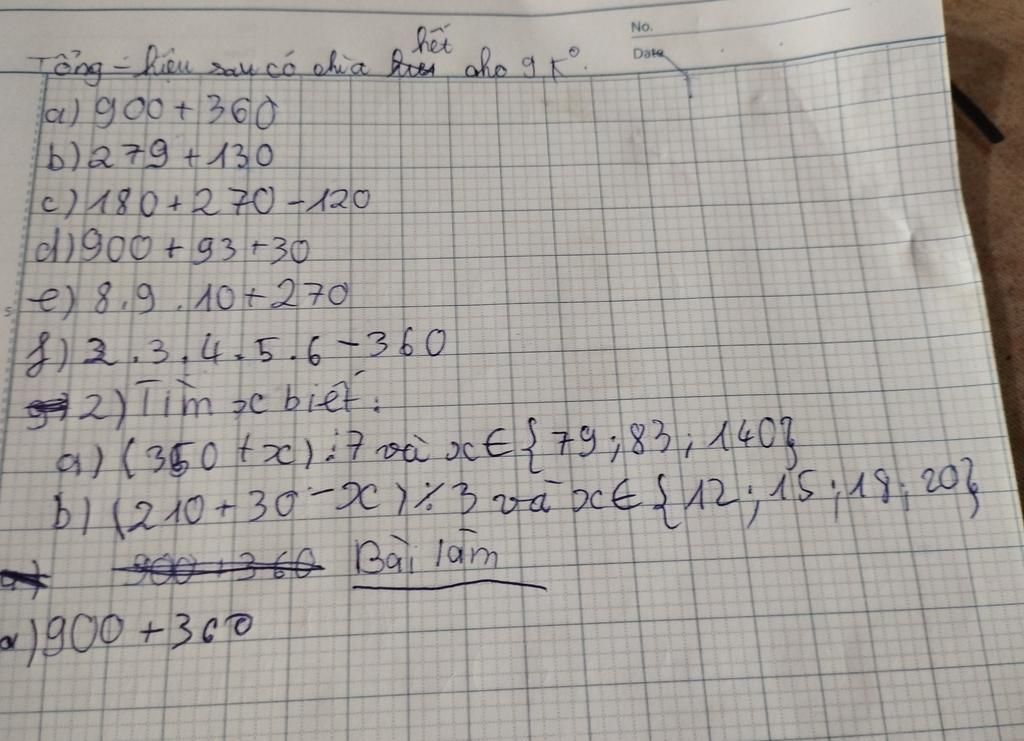 No.
Date
hết
Tổng - hiệu sau có chia cho 9 k°.
a) 900 + 360
b) 279 + 130
c) 180 + 270 - 120
d) 900 + 93 + 30
e) 8.9.10 + 270
f) 2.3.4.5.6 - 360
2) Tìm x biết:
a) (350 + x) ⋮ 7 và x ∈ {79; 83; 140}
b) (210 + 30 - x) ⋮̸ 3 và x ∈ {12; 15; 18; 20}
a) 900 + 360 Bài làm
a) 900 + 360